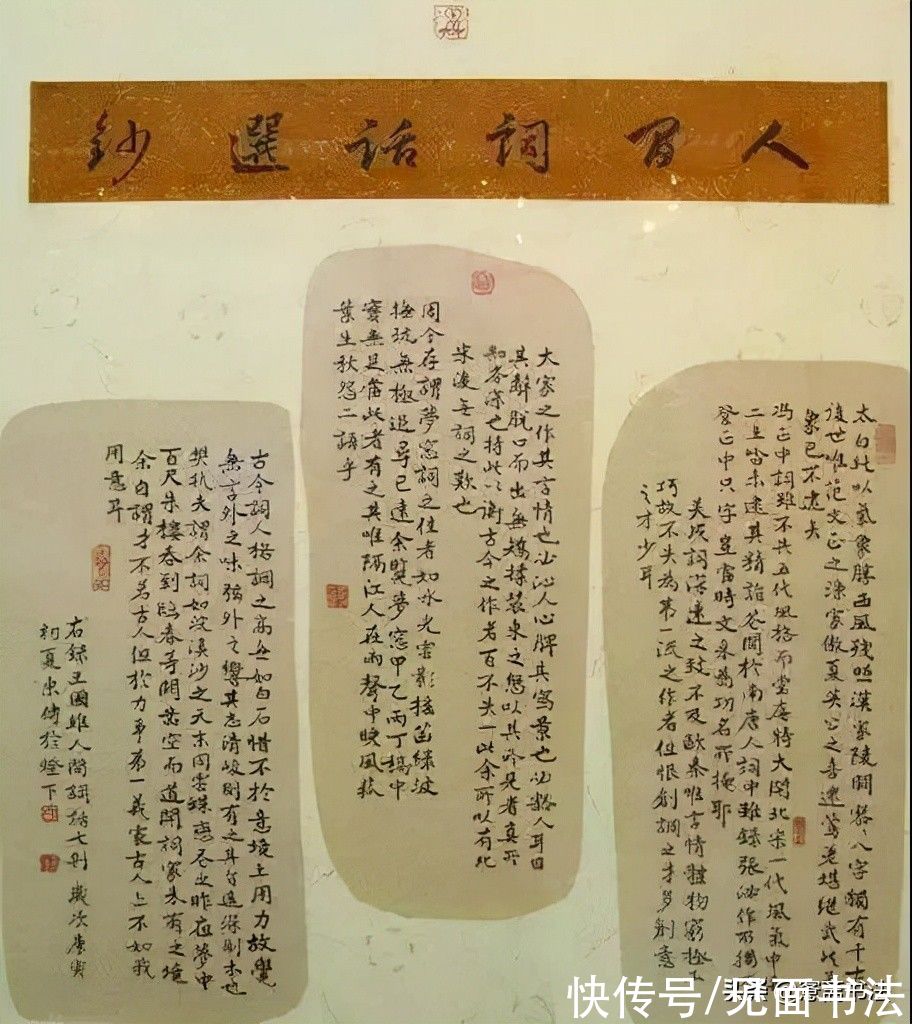 人間詞話選鈔
太白純以氣象勝西風殘照漢家陵闕寥々八字獨有千古
後世唯范文正之漁家傲夏英公之喜遷鶯差堪繼武此氣
象已不逮矣
馮正中詞雖不失五代風格而堂廡特大開北宋一代風氣中
二主皆未逮其精詣花間於南唐人詞中雖錄張泌作而獨不
登正中只字豈當時文采為功名所掩耶
美成詞深遠之致不及歐秦唯言情體物窮極工
巧故不失為第一流之作者但恨創調之才多創意
之才少耳
大家之作其言情也必沁人心脾其寫景也必豁人耳目
其辭脫口而出無矯揉裝束之態以其所見者真所
知者深也持此以衡古今之作者百不失一此余所以有北
宋後無詞之歎也
周介存謂夢窗詞之佳者如水光雲影搖蕩綠波
撫玩無極追尋已遠余覽夢窗甲乙丙丁稿中
實無足當此者有之其唯隔江人在雨聲中晚風菰
葉生秋怨二語乎
古今詞人格調之高無如白石惜不於意境上用力故覺
無言外之味弦外之響其志清峻則有之其旨遙深則未也
樊抗夫謂余詞如浣溪沙之天末同雲蝶戀花之昨夜夢中
百尺朱樓春到臨春等闋鑿空而道開詞家未有之境
余自謂才不若古人但於力爭第一義處古人亦不如我
用意耳
右錄王國維人間詞話七則 歲次庚寅
初夏於燈下
快传号/见面书法